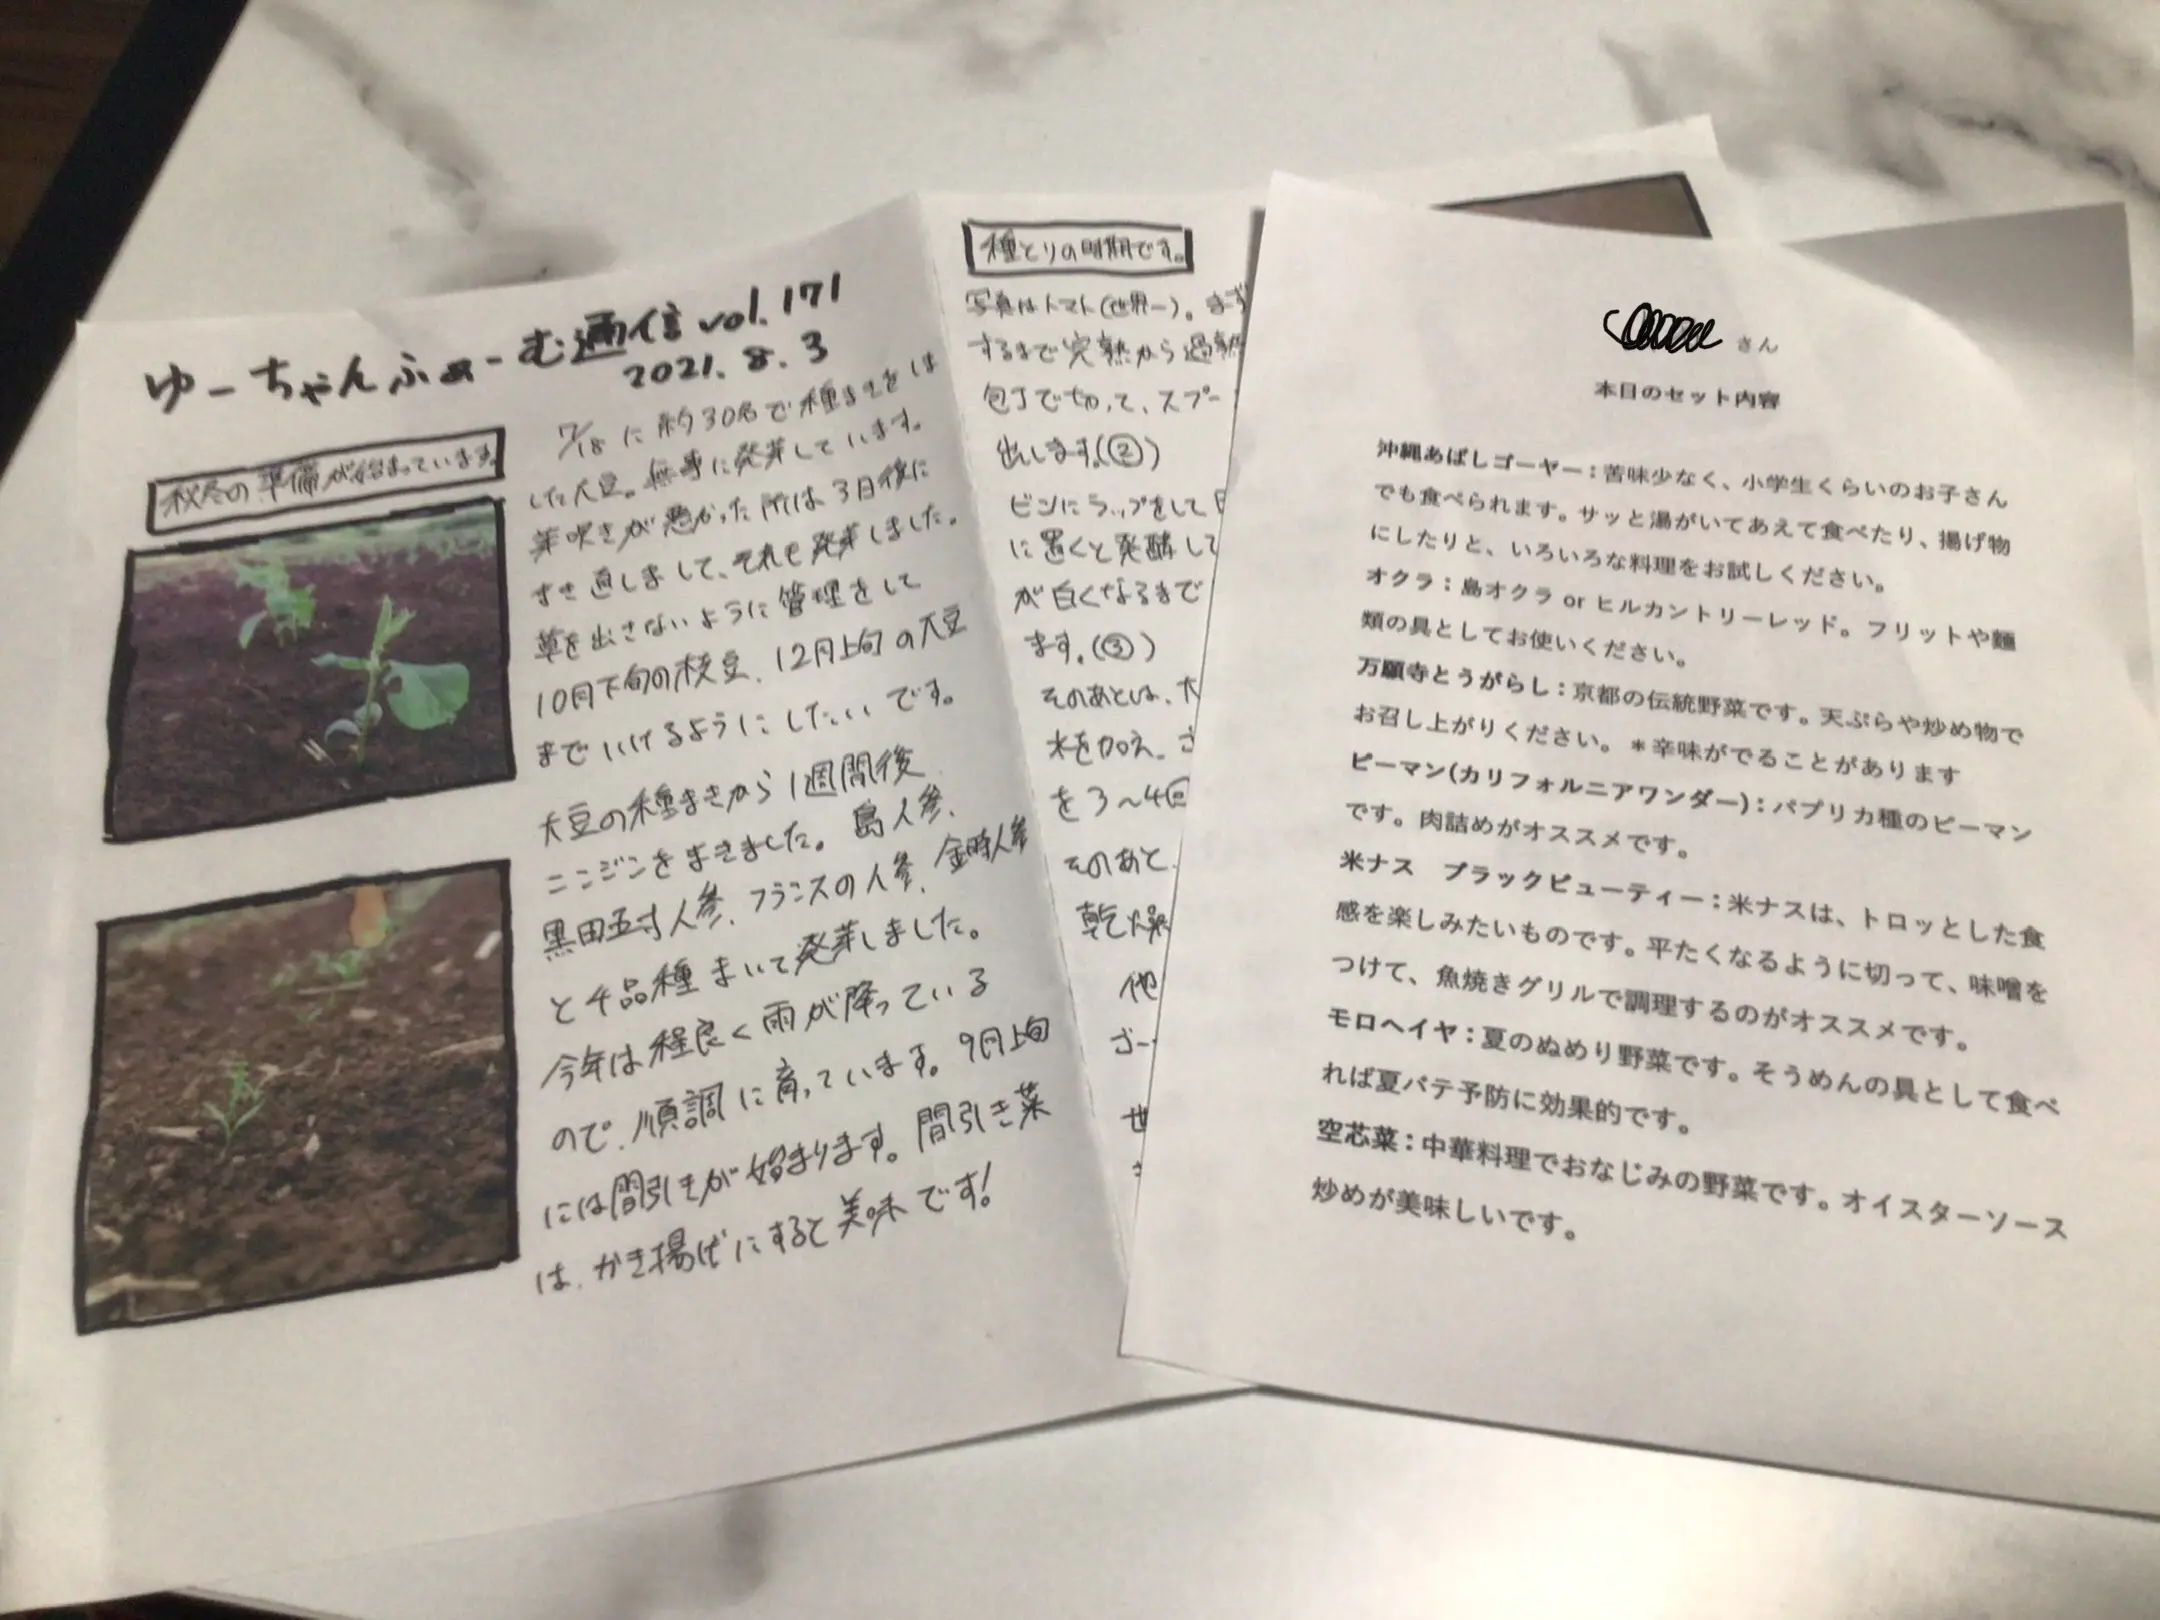 ゆーちゃんふぁーむ通信 vol.171
2021.8.3
秋冬の準備が始まっています。
7/18に約30名で種まきをは
した大豆。無事に発芽しています。
芽吹きが悪かった所は3日後に
まき直しまして、それも発芽しました。
草を出さないように管理をして
10月下旬の枝豆、12月上旬の大豆
までいけるようにしたいです。
大豆の種まきから1週間後
ニンジンをまきました。島人参、
黒田五寸人参、フランスの人参、金時人参
と4品種まいて発芽しました。
今年は程良く雨が降っている
ので、順調に育っています。9月上旬
には間引きが始まります。間引き菜
は、かき揚げにすると美味です!
種とりの時期です。
写真はトマト(世界一)。まず
するまで完熟から過熟
包丁で切って、スプー
出します。(②)
ビンにラップをして
に置くと発酵して
が白くなるまで
ます。(③)
そのあとは、
水を加え、
を3〜4回
そのあと、
乾燥
他
ゴー
さん
本日のセット内容
沖縄あばしゴーヤー：苦味少なく、小学生くらいのお子さん
でも食べられます。サッと湯がいてあえて食べたり、揚げ物
にしたりと、いろいろな料理をお試しください。
オクラ：島オクラ or ヒルカントリーレッド。フリットや麺
類の具としてお使いください。
万願寺とうがらし：京都の伝統野菜です。天ぷらや炒め物で
お召し上がりください。＊辛味がでることがあります
ピーマン(カリフォルニアワンダー)：パプリカ種のピーマン
です。肉詰めがオススメです。
米ナス　ブラックビューティー：米ナスは、トロッとした食
感を楽しみたいものです。平たくなるように切って、味噌を
つけて、魚焼きグリルで調理するのがオススメです。
モロヘイヤ：夏のぬめり野菜です。そうめんの具として食べ
れば夏バテ予防に効果的です。
空芯菜：中華料理でおなじみの野菜です。オイスターソース
炒めが美味しいです。